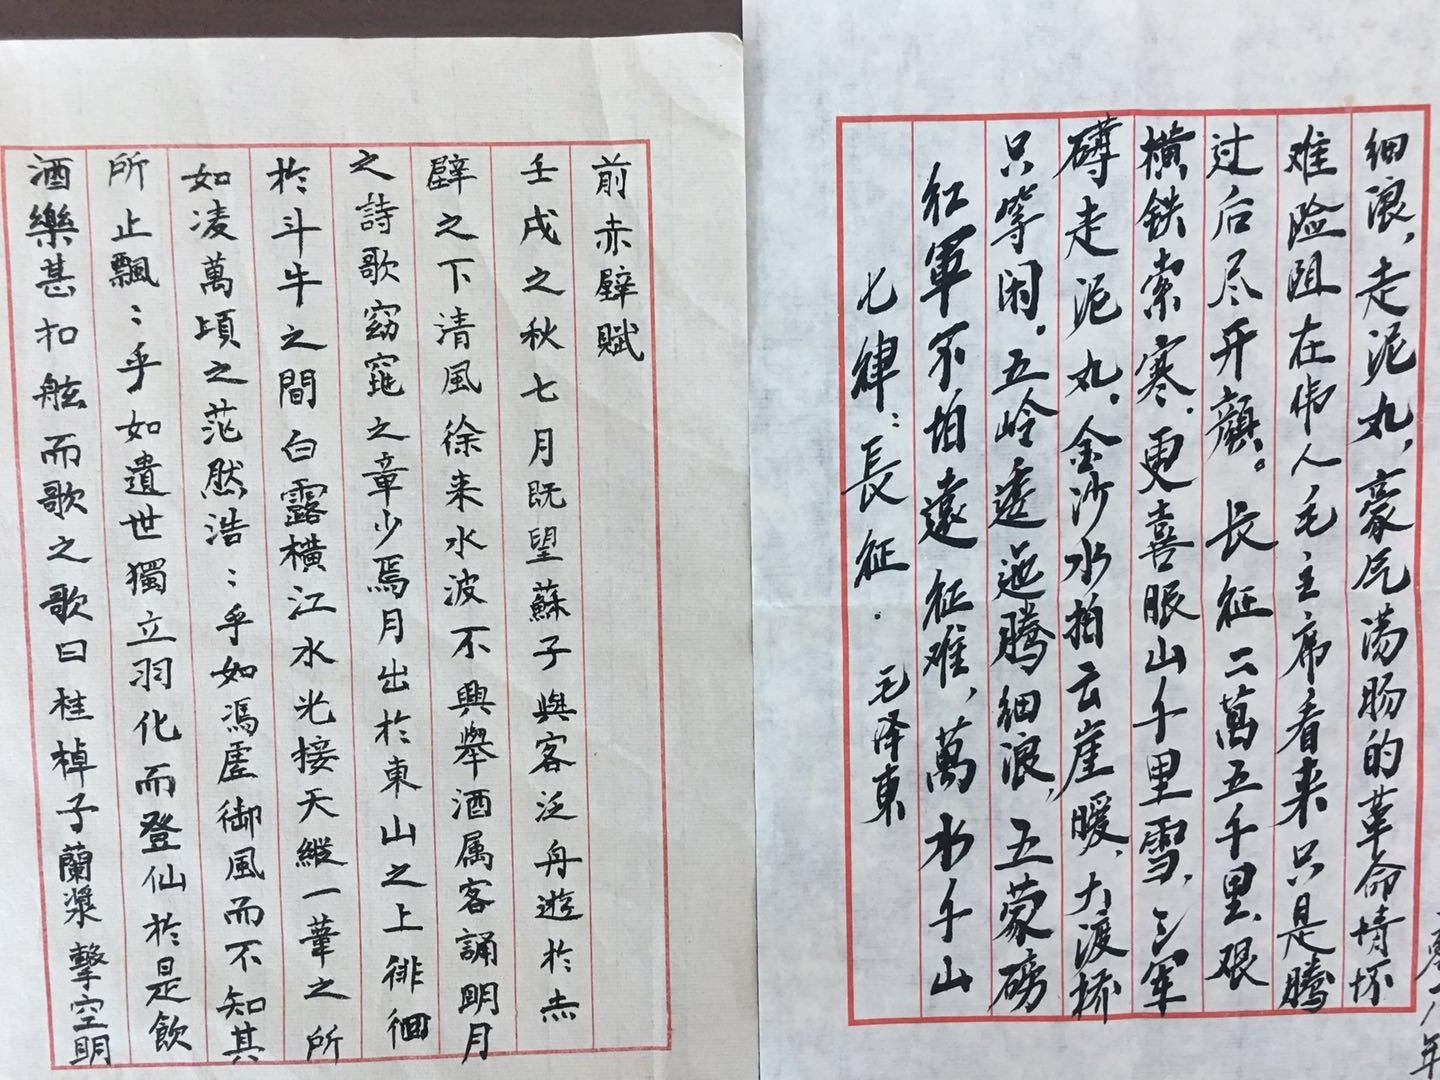 前赤壁賦
壬戌之秋七月既望蘇子與客泛舟遊於赤
壁之下清風徐来水波不興舉酒属客誦明月
之詩歌窈窕之章少焉月出於東山之上徘徊
於斗牛之間白露横江水光接天縱一葦之所
如凌萬頃之茫然浩:乎如馮虚御風而不知其
所止飄:乎如遺世獨立羽化而登仙於是飲
酒樂甚扣舷而歌之歌曰桂棹子蘭漿擊空明
七律:長征. 毛泽東
红軍不怕遠征难,萬水千山
只等闲.五岭逶迤腾细浪,五蒙磅
礴走泥丸,金沙水拍云崖暖,大渡桥
横铁索寒.更喜眠山千里雪,三军
过后尽开颜。长征二萬五千里,艰
难险阻在伟人毛主席看来只是腾
细浪,走泥丸,豪气荡肠的革命情怀